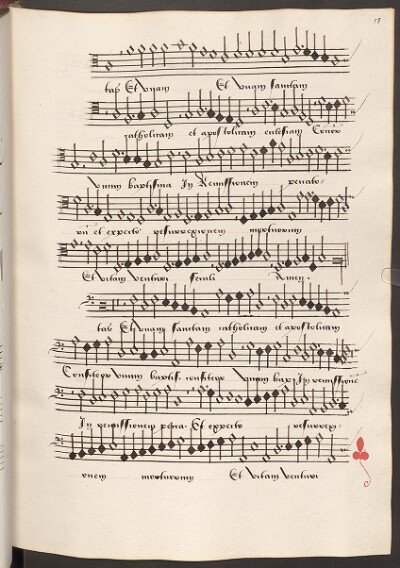 tas Et unam Et unam sanctam
catholicam et apostolicam ecclesiam Confi
Unum baptisma In Remissionem peccato
rum et expecto resurrexionem mortuorum
Et vitam venturi seculi Amen
tas Et unam sanctam catholicam et apostolicam
Confiteor unum baptis confiteor unum bap In remissione
In remissionem pecca Et expecto resurrexi
onem mortuorum Et vitam venturi